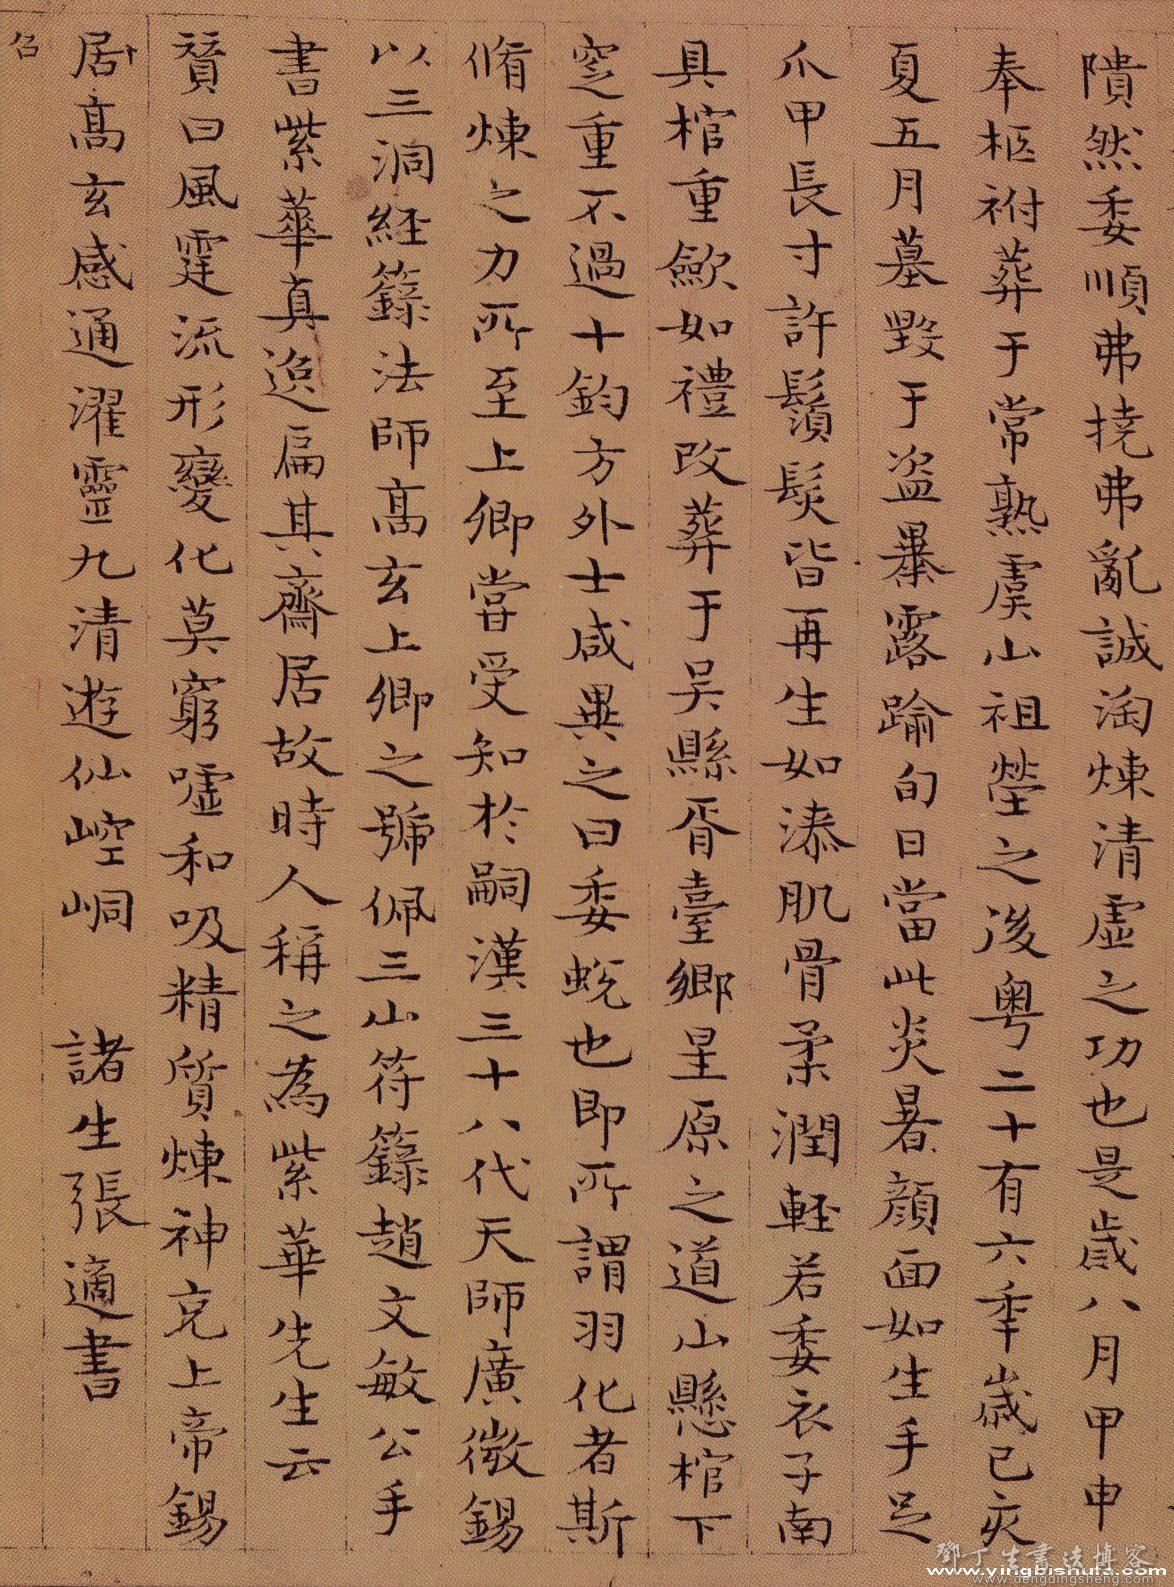 隤然委順弗撓弗亂誠淘煉清虛之功也是歲八月甲申
奉柩祔葬于常熟虞山祖塋之後粵二十有六年歲已亥
夏五月墓毀于盜暴露踰旬日當此炎暑顏面如生手足
爪甲長寸許鬚髮皆再生如漆肌骨柔潤輕若委衣子南
具棺重斂如禮改葬于吳縣胥臺鄉星原之道山懸棺下
窆重不過十鈞方外士咸異之曰委蛻也即所謂羽化者斯
脩煉之力所至上卿嘗受知於嗣漢三十八代天師廣微錫
以三洞經籙法師高玄上卿之號佩三山符籙趙文敏公手
書紫華真逸扁其齋居故時人稱之為紫華先生云
贊曰風霆流形變化莫窮噓和吸精質煉神充上帝錫
居高玄感通濯靈九清遊仙崆峒 諸生張適書
召
鄧丁生書法博客
www.yingbishufa.com
www.dengdingsheng.com